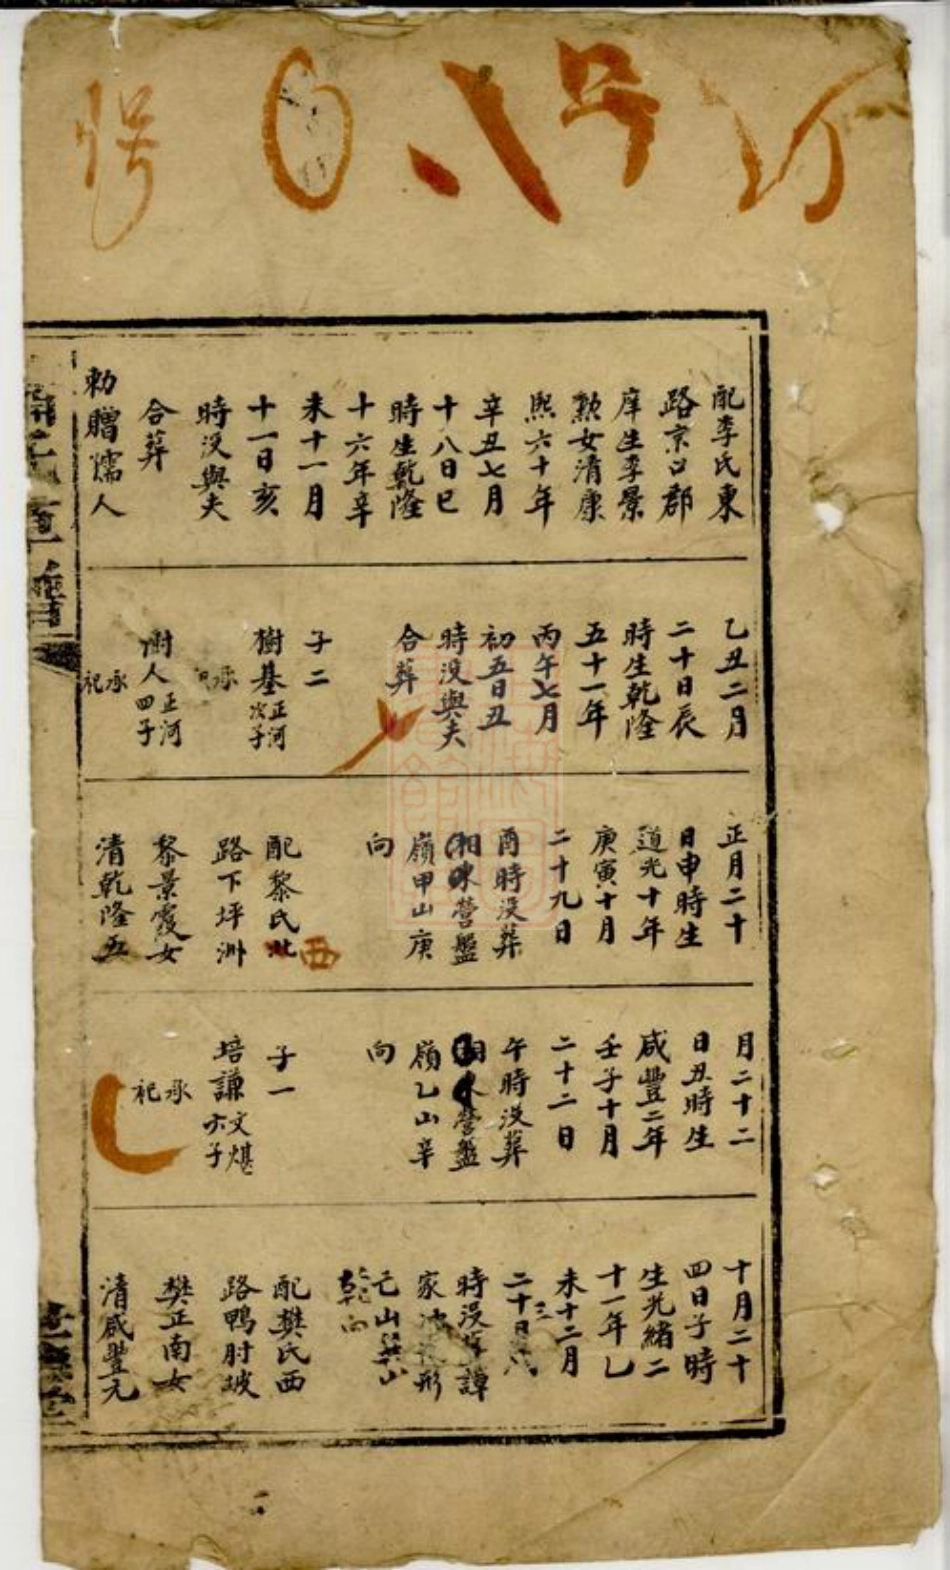 號
配李氏東
路京口郡
庠生李景
勲女清康
熙六十年
辛丑七月
十八日巳
時生乾隆
十六年辛
未十一月
十一日亥
時没與夫
合葬
勅贈孺人
乙丑二月
二十日辰
時生乾隆
五十一年
丙午七月
初五日丑
時没與夫
合葬
子二
樹基正河次子
承
樹人正河四子
承祀
正月二十
日申時生
道光十年
庚寅十月
二十九日
酉時没葬
湘東營盤
嶺甲山庚
向
配黎氏北
西
路下坪洲
黎景霞女
清乾隆五
月二十二
日丑時生
咸豐二年
壬子十月
二十二日
午時没葬
營盤
嶺乙山辛
向
子一
培謙文煁六子
承祀
十月二十
四日子時
生光緒二
十一年乙
未十二月
二十日
三
時没葬譚
家形
山巽山
乾向
配樊氏西
路鴨肘坡
樊正南女
清咸豐元